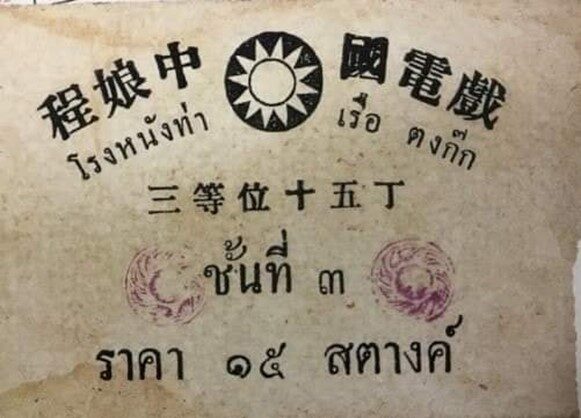 程娘中 國電戲
โรงหนังท่า เรือ ตงก๊ก
三等位十五丁
ชั้นที่ ๓
ราคา ๑๕ สตางค์